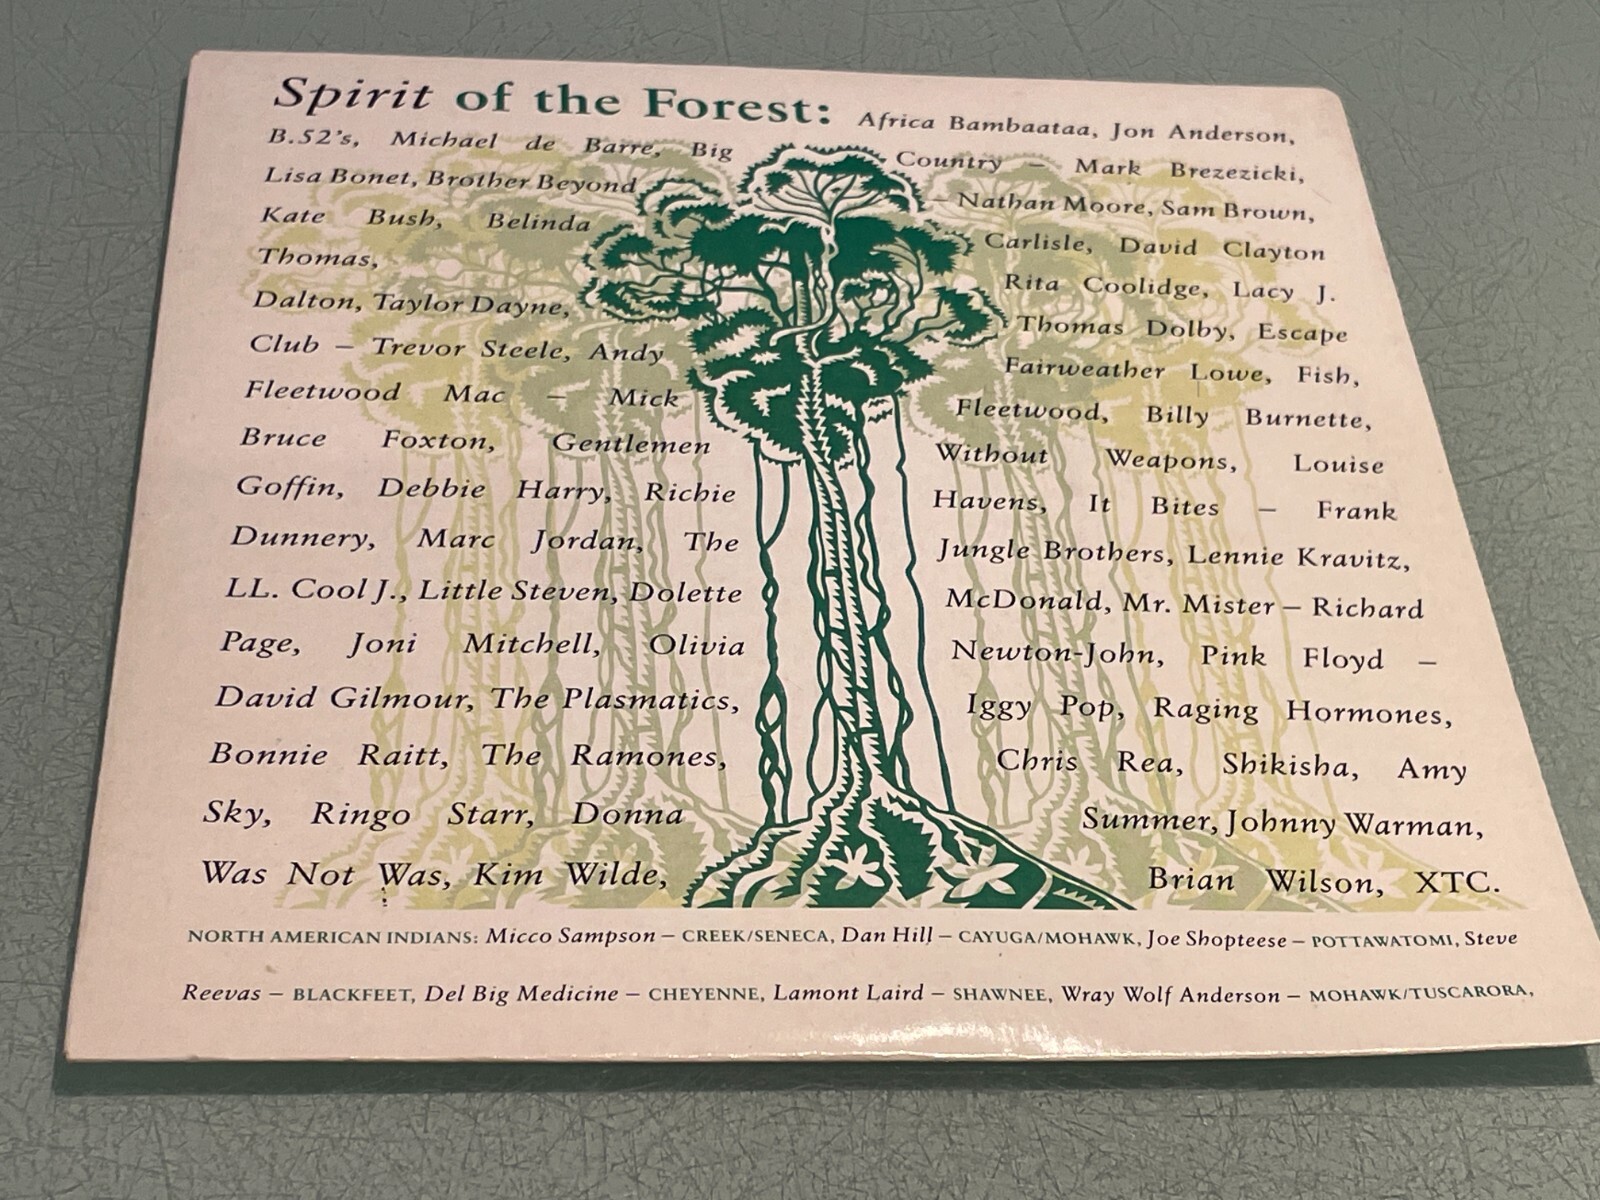 Spirit of the Forest: Africa Bambaataa, Jon Anderson,
B.52's, Michael de Barre, Big Country – Mark Brezezicki,
Lisa Bonet, Brother Beyond – Nathan Moore, Sam Brown,
Kate Bush, Belinda Carlisle, David Clayton
Thomas, Rita Coolidge, Lacy J.
Dalton, Taylor Dayne, Thomas Dolby, Escape
Club – Trevor Steele, Andy Fairweather Lowe, Fish,
Fleetwood Mac – Mick Fleetwood, Billy Burnette,
Bruce Foxton, Gentlemen Without Weapons, Louise
Goffin, Debbie Harry, Richie Havens, It Bites – Frank
Dunnery, Marc Jordan, The Jungle Brothers, Lennie Kravitz,
LL. Cool J., Little Steven, Dolette McDonald, Mr. Mister – Richard
Page, Joni Mitchell, Olivia Newton-John, Pink Floyd –
David Gilmour, The Plasmatics, Iggy Pop, Raging Hormones,
Bonnie Raitt, The Ramones, Chris Rea, Shikisha, Amy
Sky, Ringo Starr, Donna Summer, Johnny Warman,
Was Not Was, Kim Wilde, Brian Wilson, XTC.
NORTH AMERICAN INDIANS: Micco Sampson – CREEK/SENECA, Dan Hill – CAYUGA/MOHAWK, Joe Shopteese – POTTAWATOMI, Steve
Reevas – BLACKFEET, Del Big Medicine – CHEYENNE, Lamont Laird – SHAWNEE, Wray Wolf Anderson – MOHAWK/TUSCARORA,